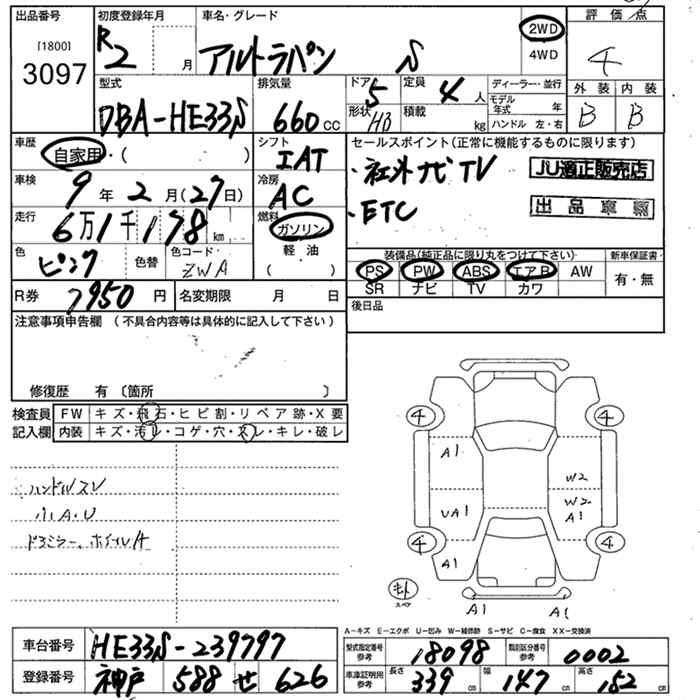 出品番号 初度登録年月 車名・グレード 評価点
[1800]
3097
R2 月 アルトラパン S 2WD 4WD 4
型式 排気量 ドア 5 定員 4人 ディーラー・並行 外装 内装
DBA-HE33S 660cc 形状 HB 積載 kg モデル年式 年 B B
ハンドル 左・右
車歴 自家用・( ) シフト IAT セールスポイント(正常に機能するものに限ります)
車検 9年2月(27日) 冷房 AC ・社外ナビTV JU適正販売店
走行 6万1千178km 燃料 ガソリン 軽・油 ( ) ・ETC 出品車輌
色 ピンク 色替 色コード ZWA
装備品(純正品に限り丸をつけて下さい) 新車保証書
PS PW ABS エアB AW 有・無
SR ナビ TV カワ
R券 7950円 名変期限 月 日 後日品
注意事項申告欄 (不具合内容等は具体的に記入して下さい)
修復歴 有 〔箇所 〕
検査員 FW キズ・飛石・ヒビ割・リペア跡・X要
記入欄 内装 キズ・汚レ・コゲ・穴・スレ・キレ・破レ
ハンドルスレ
小A・U
ドアミラー、ホイルA
4 4
A1
W2
UA1 W2 A1
4 4
A1
キト
スペア
A1 A1
A-キズ E-エクボ U-凹み W-補修跡 S-サビ C-腐食 XX-交換済
車台番号 HE33S-239797 型式指定番号 参考 18098 類別区分番号 参考 0002
登録番号 神戸 588 せ 626 車庫証明用 参考 長さ 339cm 幅 147cm 高さ 152cm